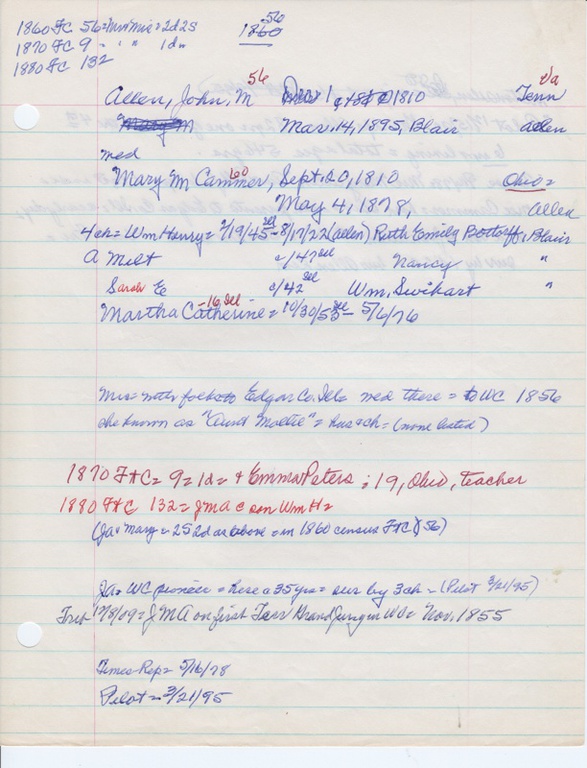 1860 F+C 56 = Mr+Mrs = 2d 2s
1870 F+C 9 = " " 1d
1880 F+C 132
1860 56
56
Va
Allen, John, M Dec 1, 1810 Tenn
Mary M Mar. 14, 1895, Blair Allen
med
Mary M Cammer, Sept. 20, 1810 Ohio =
60
May 4, 1878, Allen
4 ch = Wm Henry = 2/19/45 Ill - 8/17/22 (Allen) Ruth Emily Bottorff, Blair
A Milt c/47 Ill Nancy "
Sarah E c/42 Ill Wm, Swihart "
Martha Catherine = 10/30/53 Ill - 5/6/76
-16 Ill
Mrs = with folks to Edgar Co. Ill = med there = to WC 1856
she known as "Aunt Mollie" = hus+ch = (none listed)
1870 F+C = 9 = 1d = + Emma Peters = 19, Ohio, teacher
1880 F+C 132 = JMA c son Wm H =
(Ja + Mary = 2S 2d as above = in 1860 census F+C) (56)
Ja = WC pioneer = here c 35 yrs = sur by 3 ch = (Pilot 3/21/95)
Trib 12/8/09 = JMA on first Terr Grand Jury in WC = Nov. 1855
Times-Rep = 5/16/78
Pilot = 3/21/95